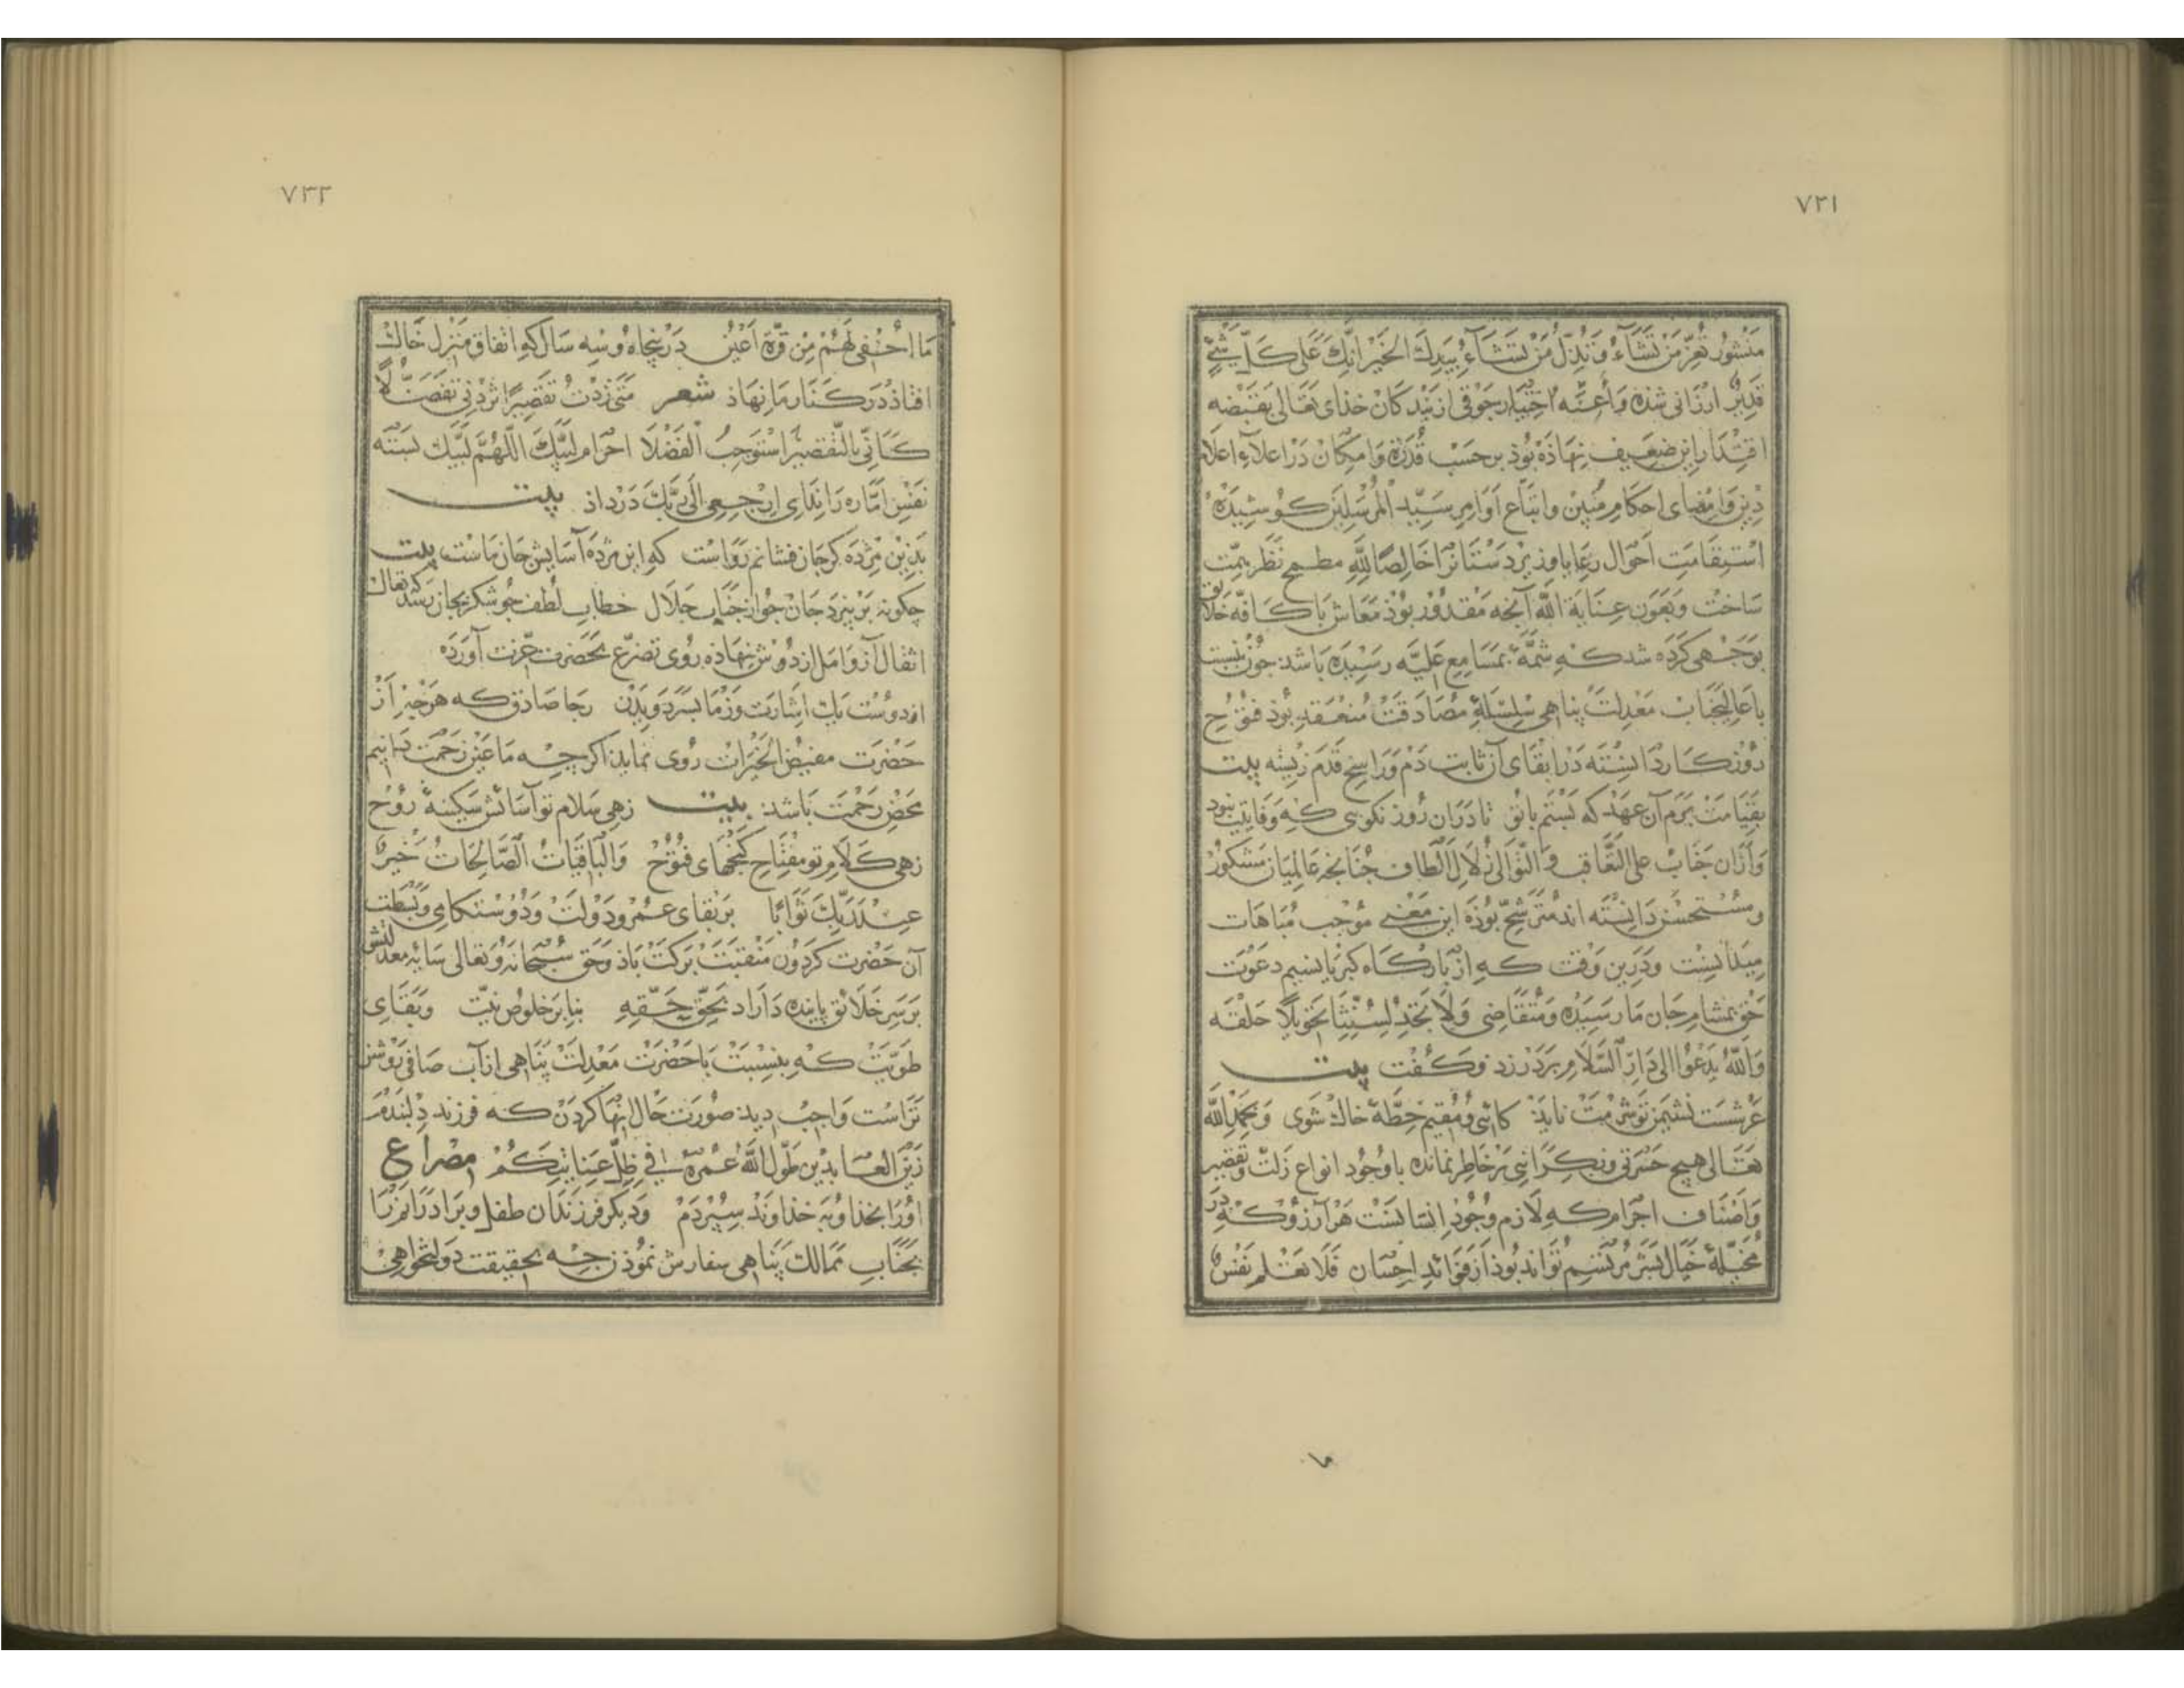 ٧٣١
منشور تُعِزُّ مَنْ تَشَآءُ وَ تُذِلُّ مَنْ تَشَآءُ بِيَدِكَ الخَيْرُ اِنَّكَ عَلى كُلِّ شَيْءٍ
قَدِيْرٌ ارزانی شذه وَ أعِنَّه اختیار جوقی از بندکان خذای تعالی بقبضه
اقتدار این ضعیف نهاذه بوذ بر حسب قدرة و امکان در اعلآءِ اعلام
دین و امضای احکام مبین و اتباع اوامر سیّد المرسلین کوشیده
استقامت احوال رعایا و زیردستانرا خالصًا لله مطمح نظر همّت
ساخت و بعون عنایة الله آنچه مقدور بوذ معاش با کافّه خلایق
بوجهی کرده شد که شمّهٔ بمسامع علیّه رسیده باشد: جون نسبت
با عالیجناب معدلت پناهی سلسلهٔ مصادقت منعقد بوذ فتوح
روزکار دانسته در ابقای آن ثابت دم و راسخ قدم زیسته بیت
بقیامت برم آن عهد که بستم با تو تا دران روز نکویی که وفاییت نبوذ
و ازان جناب علی التعاقب و التوالی زلال الطاف جنانچه عالمیان مشکور
و مستحسن دانسته اند مترشّح بوذه این معنی موجب مباهات
میدانست و درین وقت که از بارکاه کبریا نسیم دعوت
حق بمشام جان ما رسیده و متقاضی وَلَا تَجِدُ لِسُنَّتِنَا تَحْوِيلًا حلقه
وَاَللهُ يَدْعُوا اِلى دَارِ ٱلسَّلَامِ بر در زد و کفت بیت
عرشست نشیمن تو شرمت ناید کائی و مقیم خطّهٔ خاك شوی و بحمد الله
تعالی هیچ حسرتی و نکرانی بر خاطر نمانده با وجود انواع زلّت و تقصیر
و اصناف اجرام که لازم وجود انسانست هر آرزو که در
مخیّلهٔ خیال بشر مرتسم تواند بوذ از فوائد احسان فَلَا تَعْلَمُ نَفْسٌ
ما
٧٣٢
مَا اُخْفِيَ لَهُمْ مِنْ قُرَّةِ اَعْيُنٍ در پنجاه و سه سال که اتفاق منزل خاك
افتاذ در کنار ما نهاذ شعر متی زدت تقصیرًا تزدنی تفضّلًا
کأنّی بالتقصیر استوجب الفضلا احرام لبّیك اللّهمّ لبّیك بسته
نفس امّاره را ندای اِرْجِعِي اِلى رَبِّكِ در داذ بیت
بذین مژده کر جان فشانم رواست که این مژده آسایش جان ماست بیت
جکونه بر نپرد جان جو از جناب جلال خطاب لطف جو شکر بجان رسد که تعال
اثقال آز و امل از دوش نهاذه روی تضرّع بحضرت عزت آورده
از دوست یك اشارت وز ما بسر دویدن رجا صادق که هر جیز از
حضرت مفیض الخیرات روی نماید اکر چه ما عین زحمت دانیم
محض رحمت باشد: بیت زهی سلام تو آسائش سکینهٔ روح
زهی کلام تو مفتاح کنجهای فتوح وَالْبَاقِيَاتُ ٱلصَّالِحَاتُ خَيْرٌ
عِنْدَ رَبِّكَ ثَوَابًا بر بقای عمر و دولت و دوستکامی و بسطت
آن حضرت کردون منقبت برکت باذ و حق سبحانه و تعالی سایه معدلتش
بر سر خلائق پاینده داراد بحقّ حقّه بنا بر خلوص نیّت و بقای
طویّت که بنسبت با حضرت معدلت پناهی از آب صافی روشن
تراست واجب دید صورت حال انها کردن که فرزند دلبندم
زین العابدین طوّل الله عمره فی ظلّ عنایتکم مصراع
اورا بخذا و به خذاوند سپردم و دیکر فرزندان طفل و برادرانمرا
بجناب ممالك پناهی سفارش نموذن جه بحقیقت دولتخواهی